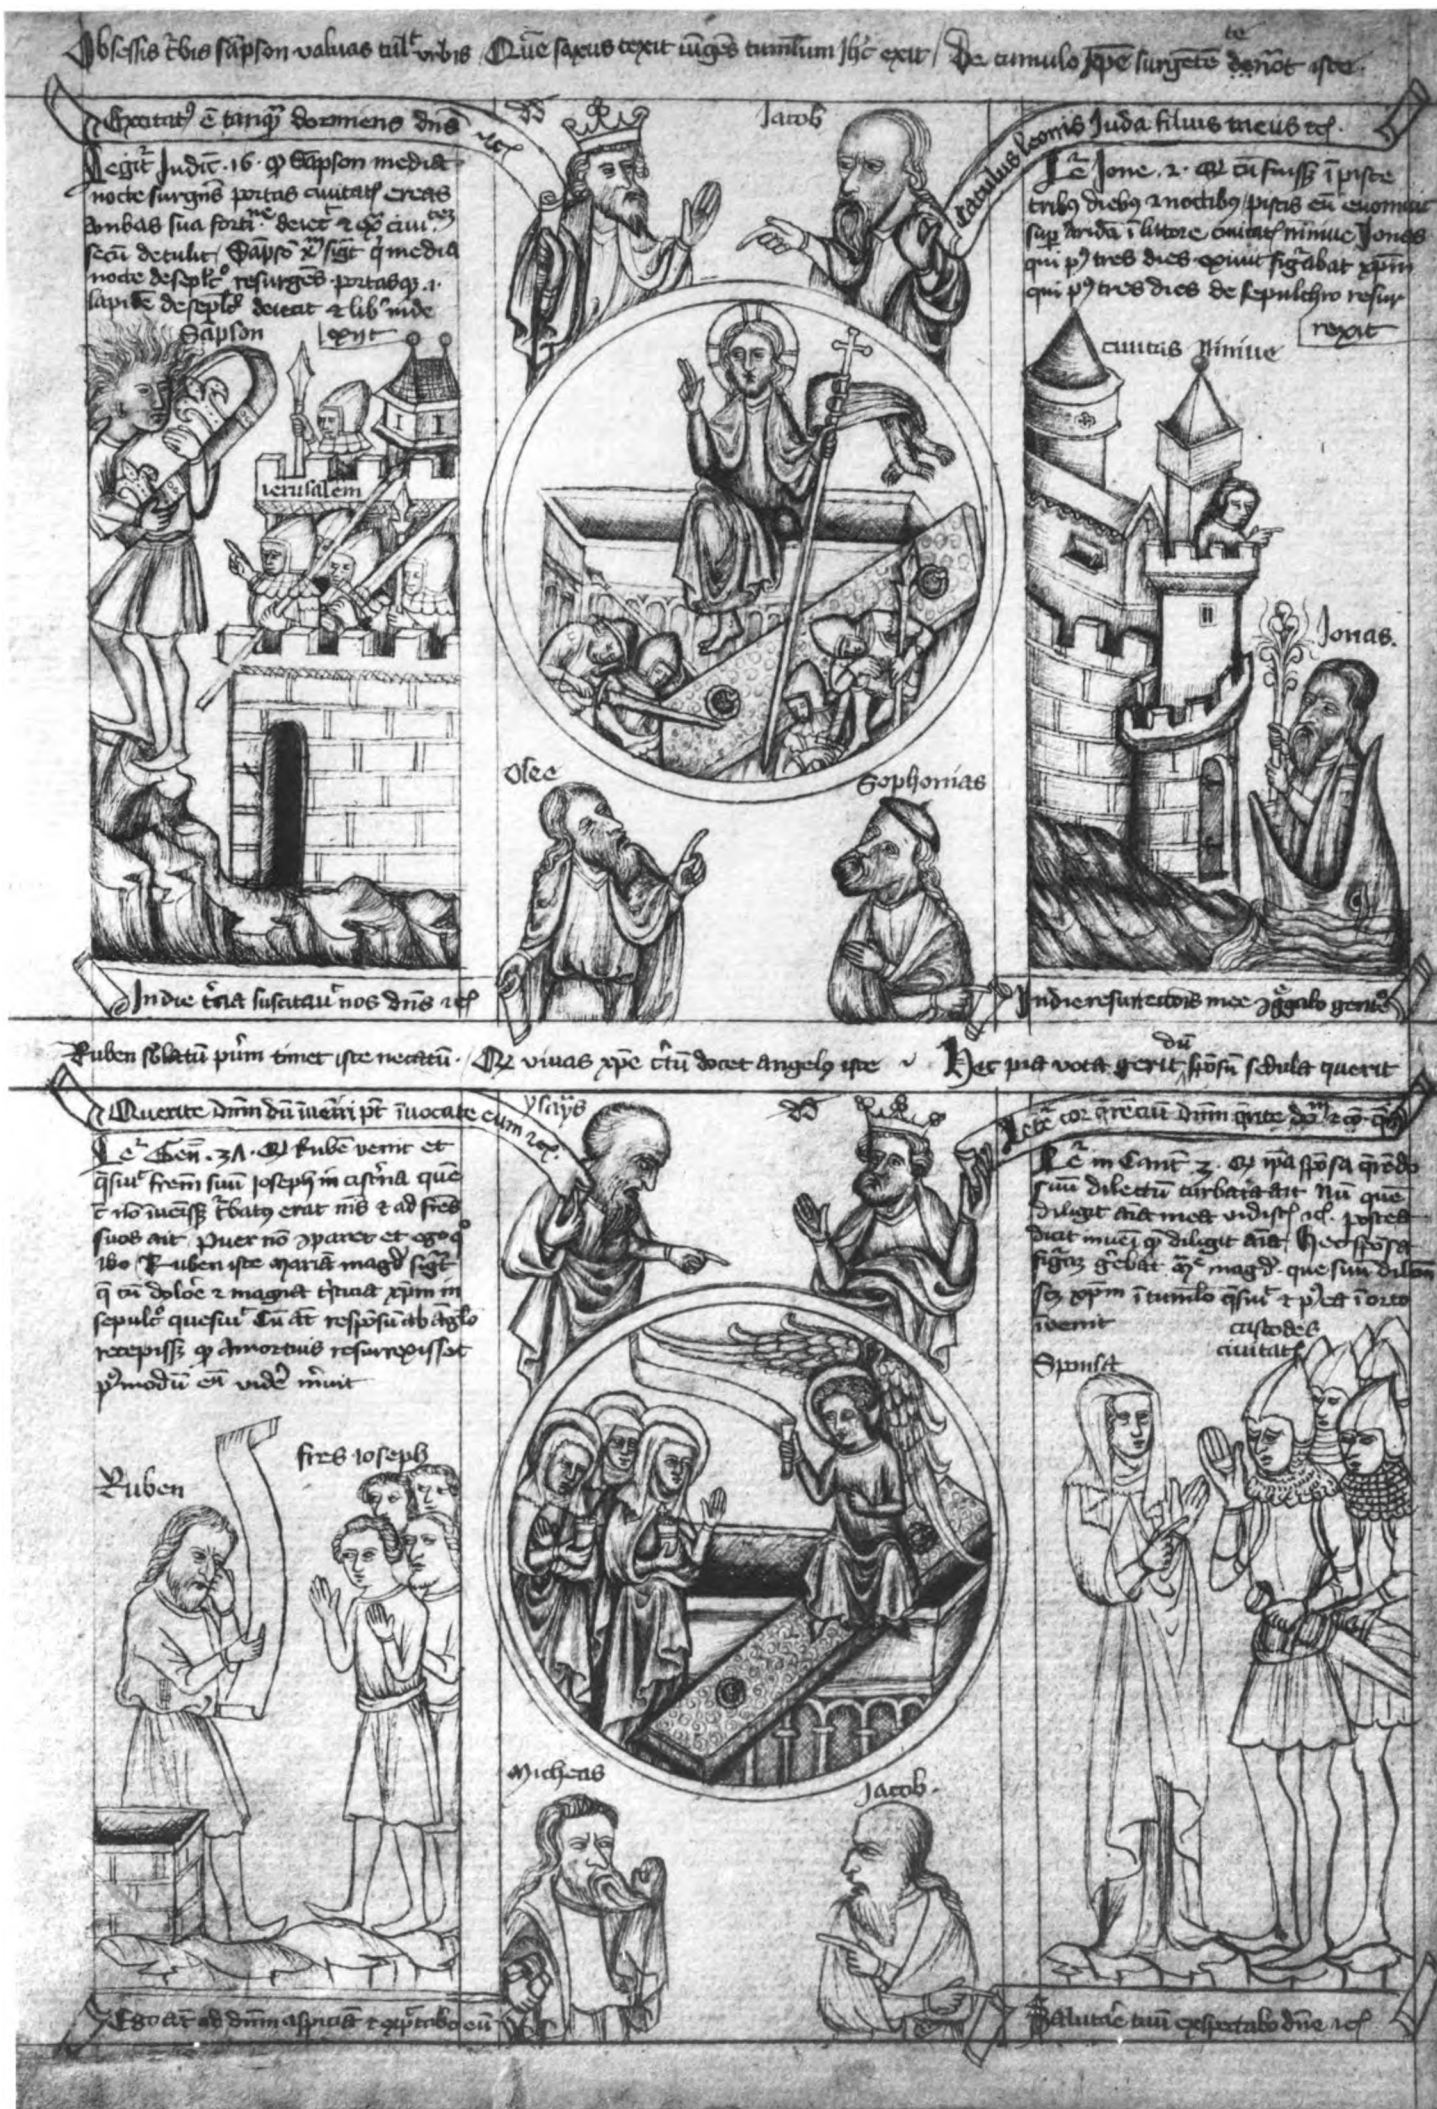 Obsessis t̄bis sāpson valuas tul̄t vrbis / Quē saxus texit īgēs tumłum Jh̄c exit / De tumulo xp̄e surgētē denōt iste
te
Excitat᷒ ē tanqȝ dormiens dn̄s ⁊cꝭ
dd
Jacob
Catulus leonis Juda filius meus ⁊cꝭ.
Legit᷑ Judic̄. 16. ꝙ Sāpson media
nocte surgēs portas ciuitatꝭ ereas
sua forti
secū detulit Sāpsō xp̄m sig᷑t q̄ media
nocte de seplc̄o resurgēs portasqȝ .i.
lapidē de seplc̄o deiecit ⁊ lib᷑ inde
exijt
Sāpson
ierusalem
Lr̄ Jone . 2 . Qꝫ cū fuissꝫ ī pisce
tribȝ diebȝ ⁊ noctibȝ / piscis eū euomuit
sup̄ aridā ī littore ciuitatꝭ niniue Jonas
qui p᷒ tres dies exiuit fig᷑abat xp̄m
qui p᷒ tres dies de sepulchro resur
rexit
ciuitas Niniue
Jonas.
Osee
Sophonias
In die t̄cia suscitau᷑ nos dn̄s ⁊cꝭ
In die resurrectōis mee ⁊gg̃abo gentꝭ
Ruben sb̄latū pūm timet iste necatū . Qꝫ viuas xp̄e c̄tū docet angelꝯ iste
Hec pia vota gerit spōsū sedula querit
dū
Querite dn̄m dū īueīri pt̄ īuocate eum ⁊cꝭ.
ysay᷒s
dd
Letet᷑ cor q̄rēciū dn̄m q̄rite dn̄m ⁊ cō
Lr̄ Gen̄ . 37 . Qꝫ Rubē venit et
q̄siuit frēm suū Joseph in cist̄na quē
c̄ nō īueissꝫ t̄batȝ erat nīs ⁊ ad frēs
suos ait Puer nō ꝯparet et ego qo
ibo / Ruben iste mariā magd᷑ sig᷑t
q̄ cū dolōe ⁊ magna t̄sticia xp̄m in
sepulc̄o quesiu᷑ Cū at̄ respōsū ab āglo
recepissꝫ ꝙ a mortuis resurrexisset
p᷒modū eū vidē m̄uit
Lr̄ in Cant̄ 3 . Qꝫ ip̄a spōsa q̄rēdo
suū dilectū turbata ait Nū quē
diligit aīa mea vidistꝭ ⁊cꝭ . postea
dicit inueī quē diligit aīa / Hec spōsa
figꝫ gēbat m̄e magd᷑ . que suū dilcm̄
scꝫ xp̄m ī tumłlo q̄siuit ⁊ p᷒ea ī orto
īuenit
Ruben
fr̄es ioseph
Sponsa
custodes
ciuitatꝭ
Micheas
Jacob.
Ego at̄ ad dn̄m aspiciā ⁊ exp̄ctabo eū
Salutāe tuū exspectabo dn̄e ⁊cꝭ